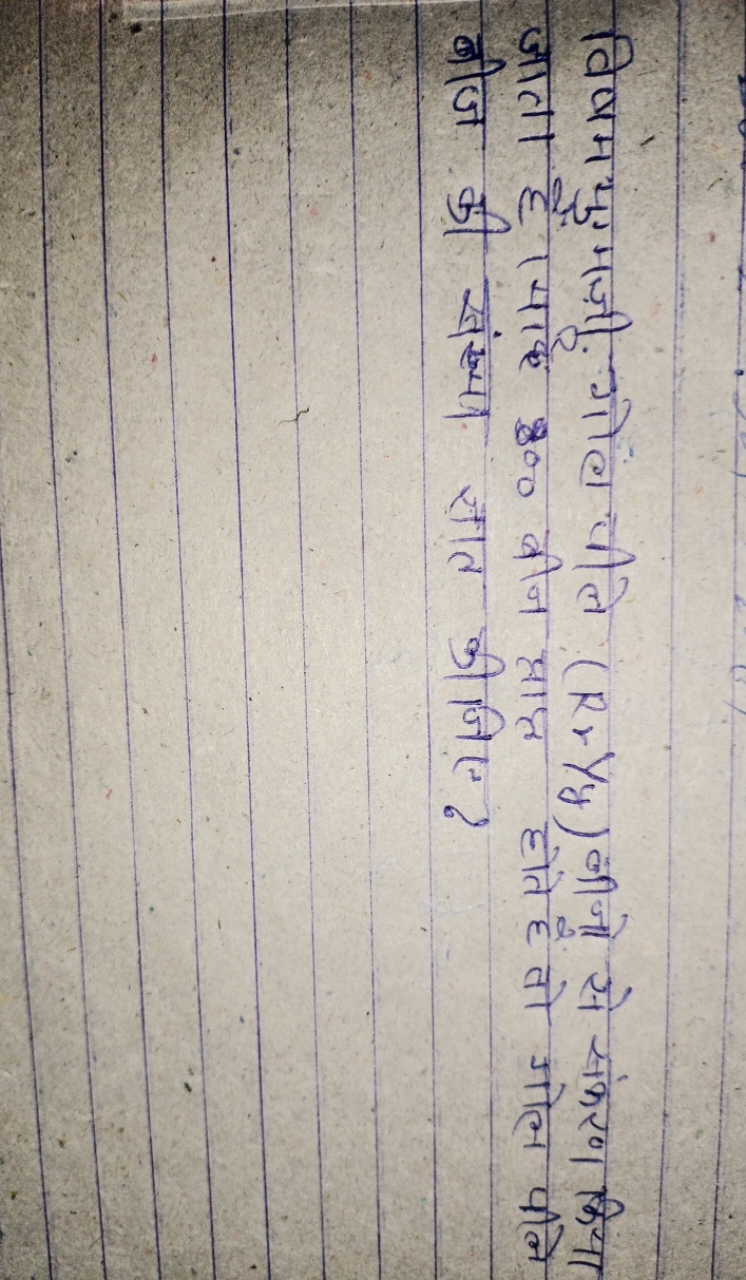 विषम युग्मजी गोल पीले (RrYy) बीजो से संकरण किया
जाता है । यदि 800 बीज प्राप्त होते है तो गोल पीले
बीज की संख्या ज्ञात कीजिए ?